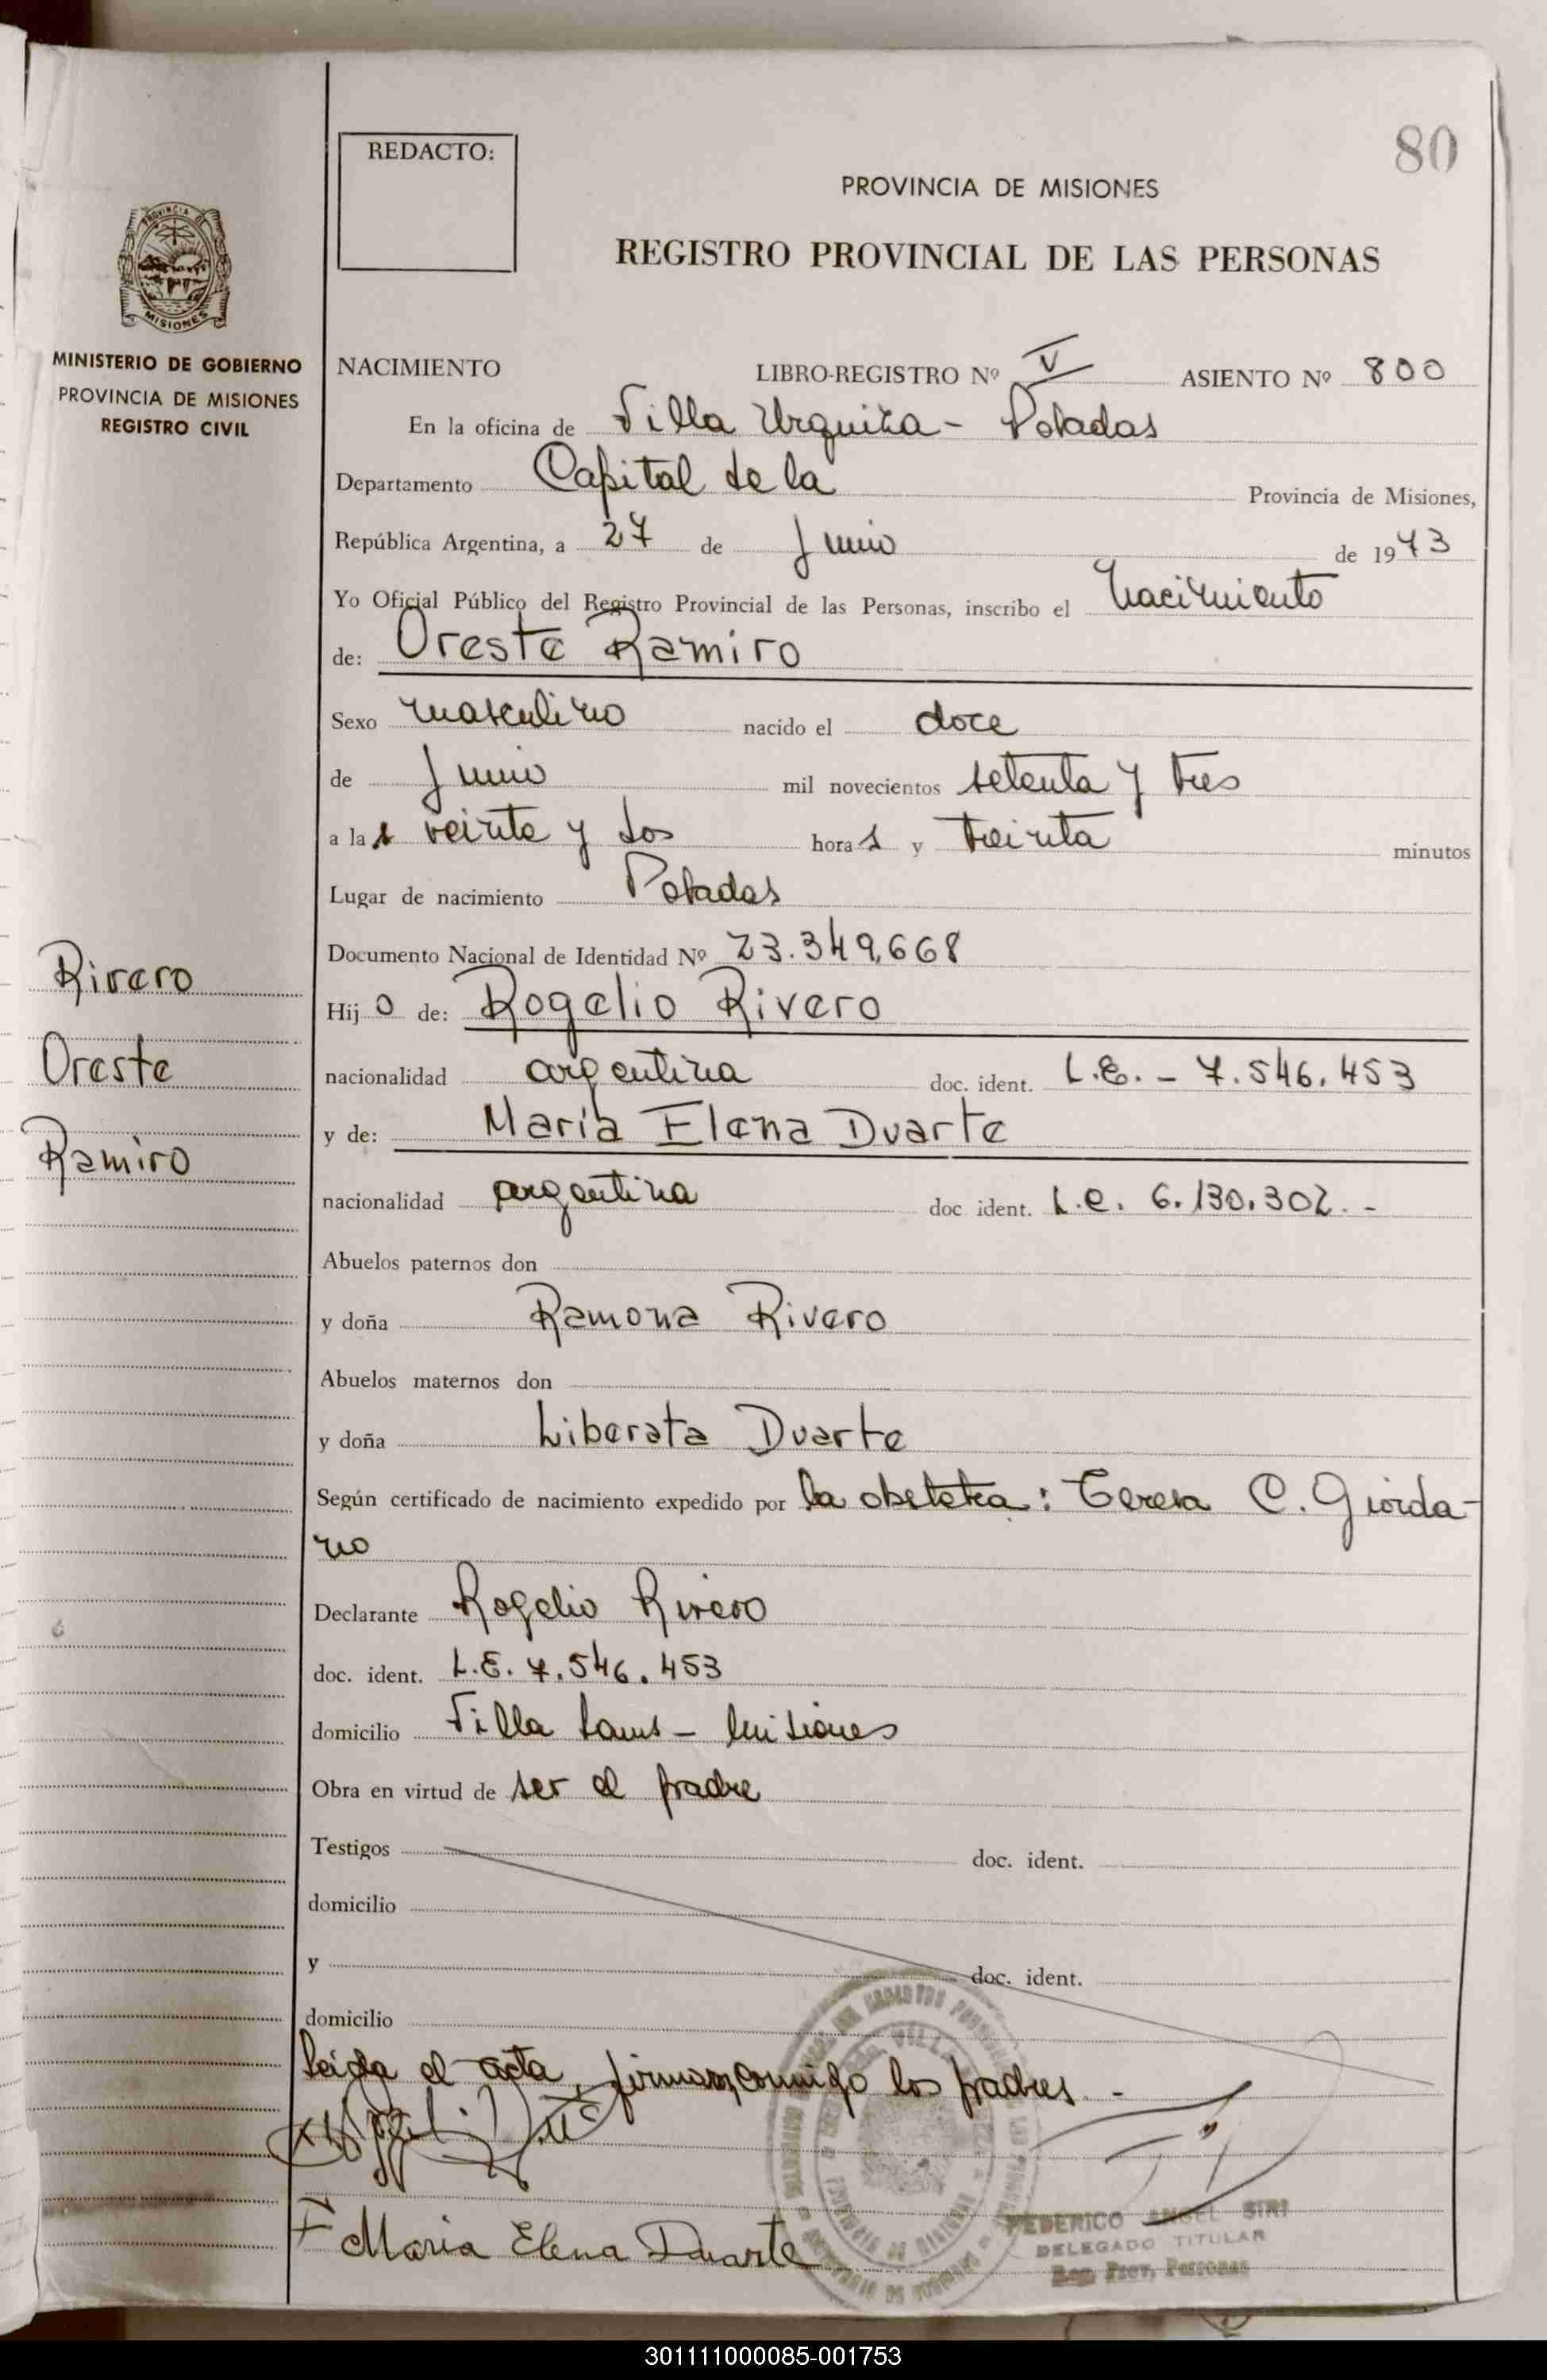 80
REDACTO:
PROVINCIA DE MISIONES
REGISTRO PROVINCIAL DE LAS PERSONAS
PROVINCIA DE
MISIONES
MINISTERIO DE GOBIERNO
PROVINCIA DE MISIONES
REGISTRO CIVIL
NACIMIENTO LIBRO-REGISTRO Nº V ASIENTO Nº 800
En la oficina de Villa Urquiza - Posadas
Departamento Capital de la Provincia de Misiones,
República Argentina, a 27 de Junio de 1973
Yo Oficial Público del Registro Provincial de las Personas, inscribo el Nacimiento
de: Oreste Ramiro
Sexo masculino nacido el doce
de Junio mil novecientos setenta y tres
a las veinte y dos horas y treinta minutos
Lugar de nacimiento Posadas
Documento Nacional de Identidad Nº 23.349.668
Rivero
Oreste
Ramiro
Hijo de: Rogelio Rivero
nacionalidad argentina doc. ident. L.E. - 7.546.453
y de: María Elena Duarte
nacionalidad argentina doc ident. L.C. 6.130.302. -
Abuelos paternos don
y doña Ramona Rivero
Abuelos maternos don
y doña Liberata Duarte
Según certificado de nacimiento expedido por la obstetra: Teresa C. Giorda-
no
Declarante Rogelio Rivero
doc. ident. L.E. 7.546.453
domicilio Villa - Misiones
Obra en virtud de ser el padre
Testigos doc. ident.
domicilio
y doc. ident.
domicilio
leída el acta, firman conmigo los padres. -
Maria Elena Duarte
FEDERICO ANGEL SIRI
DELEGADO TITULAR
Reg. Prov. Personas
301111000085-001753